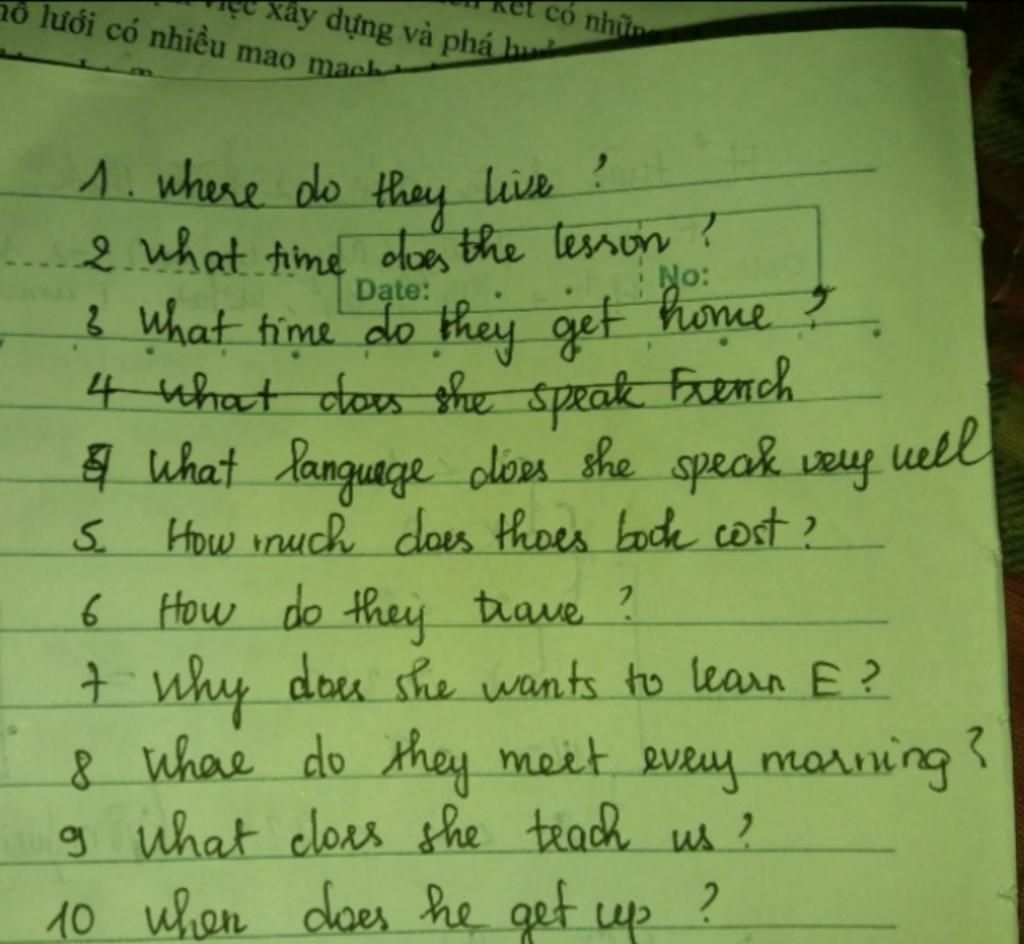 việc xây dựng và phá huỷ
kết có những
mô lưới có nhiều mao mạch
1. where do they live ?
2 What time does the lesson ?
Date: No:
3 What time do they get home ?
4 What does she speak French
4 What language does she speak very well
5 How much does thoes book cost ?
6 How do they trave ?
7 Why does she wants to learn E ?
8 Whare do they meet every morning ?
9 What does she teach us ?
10 when does he get up ?